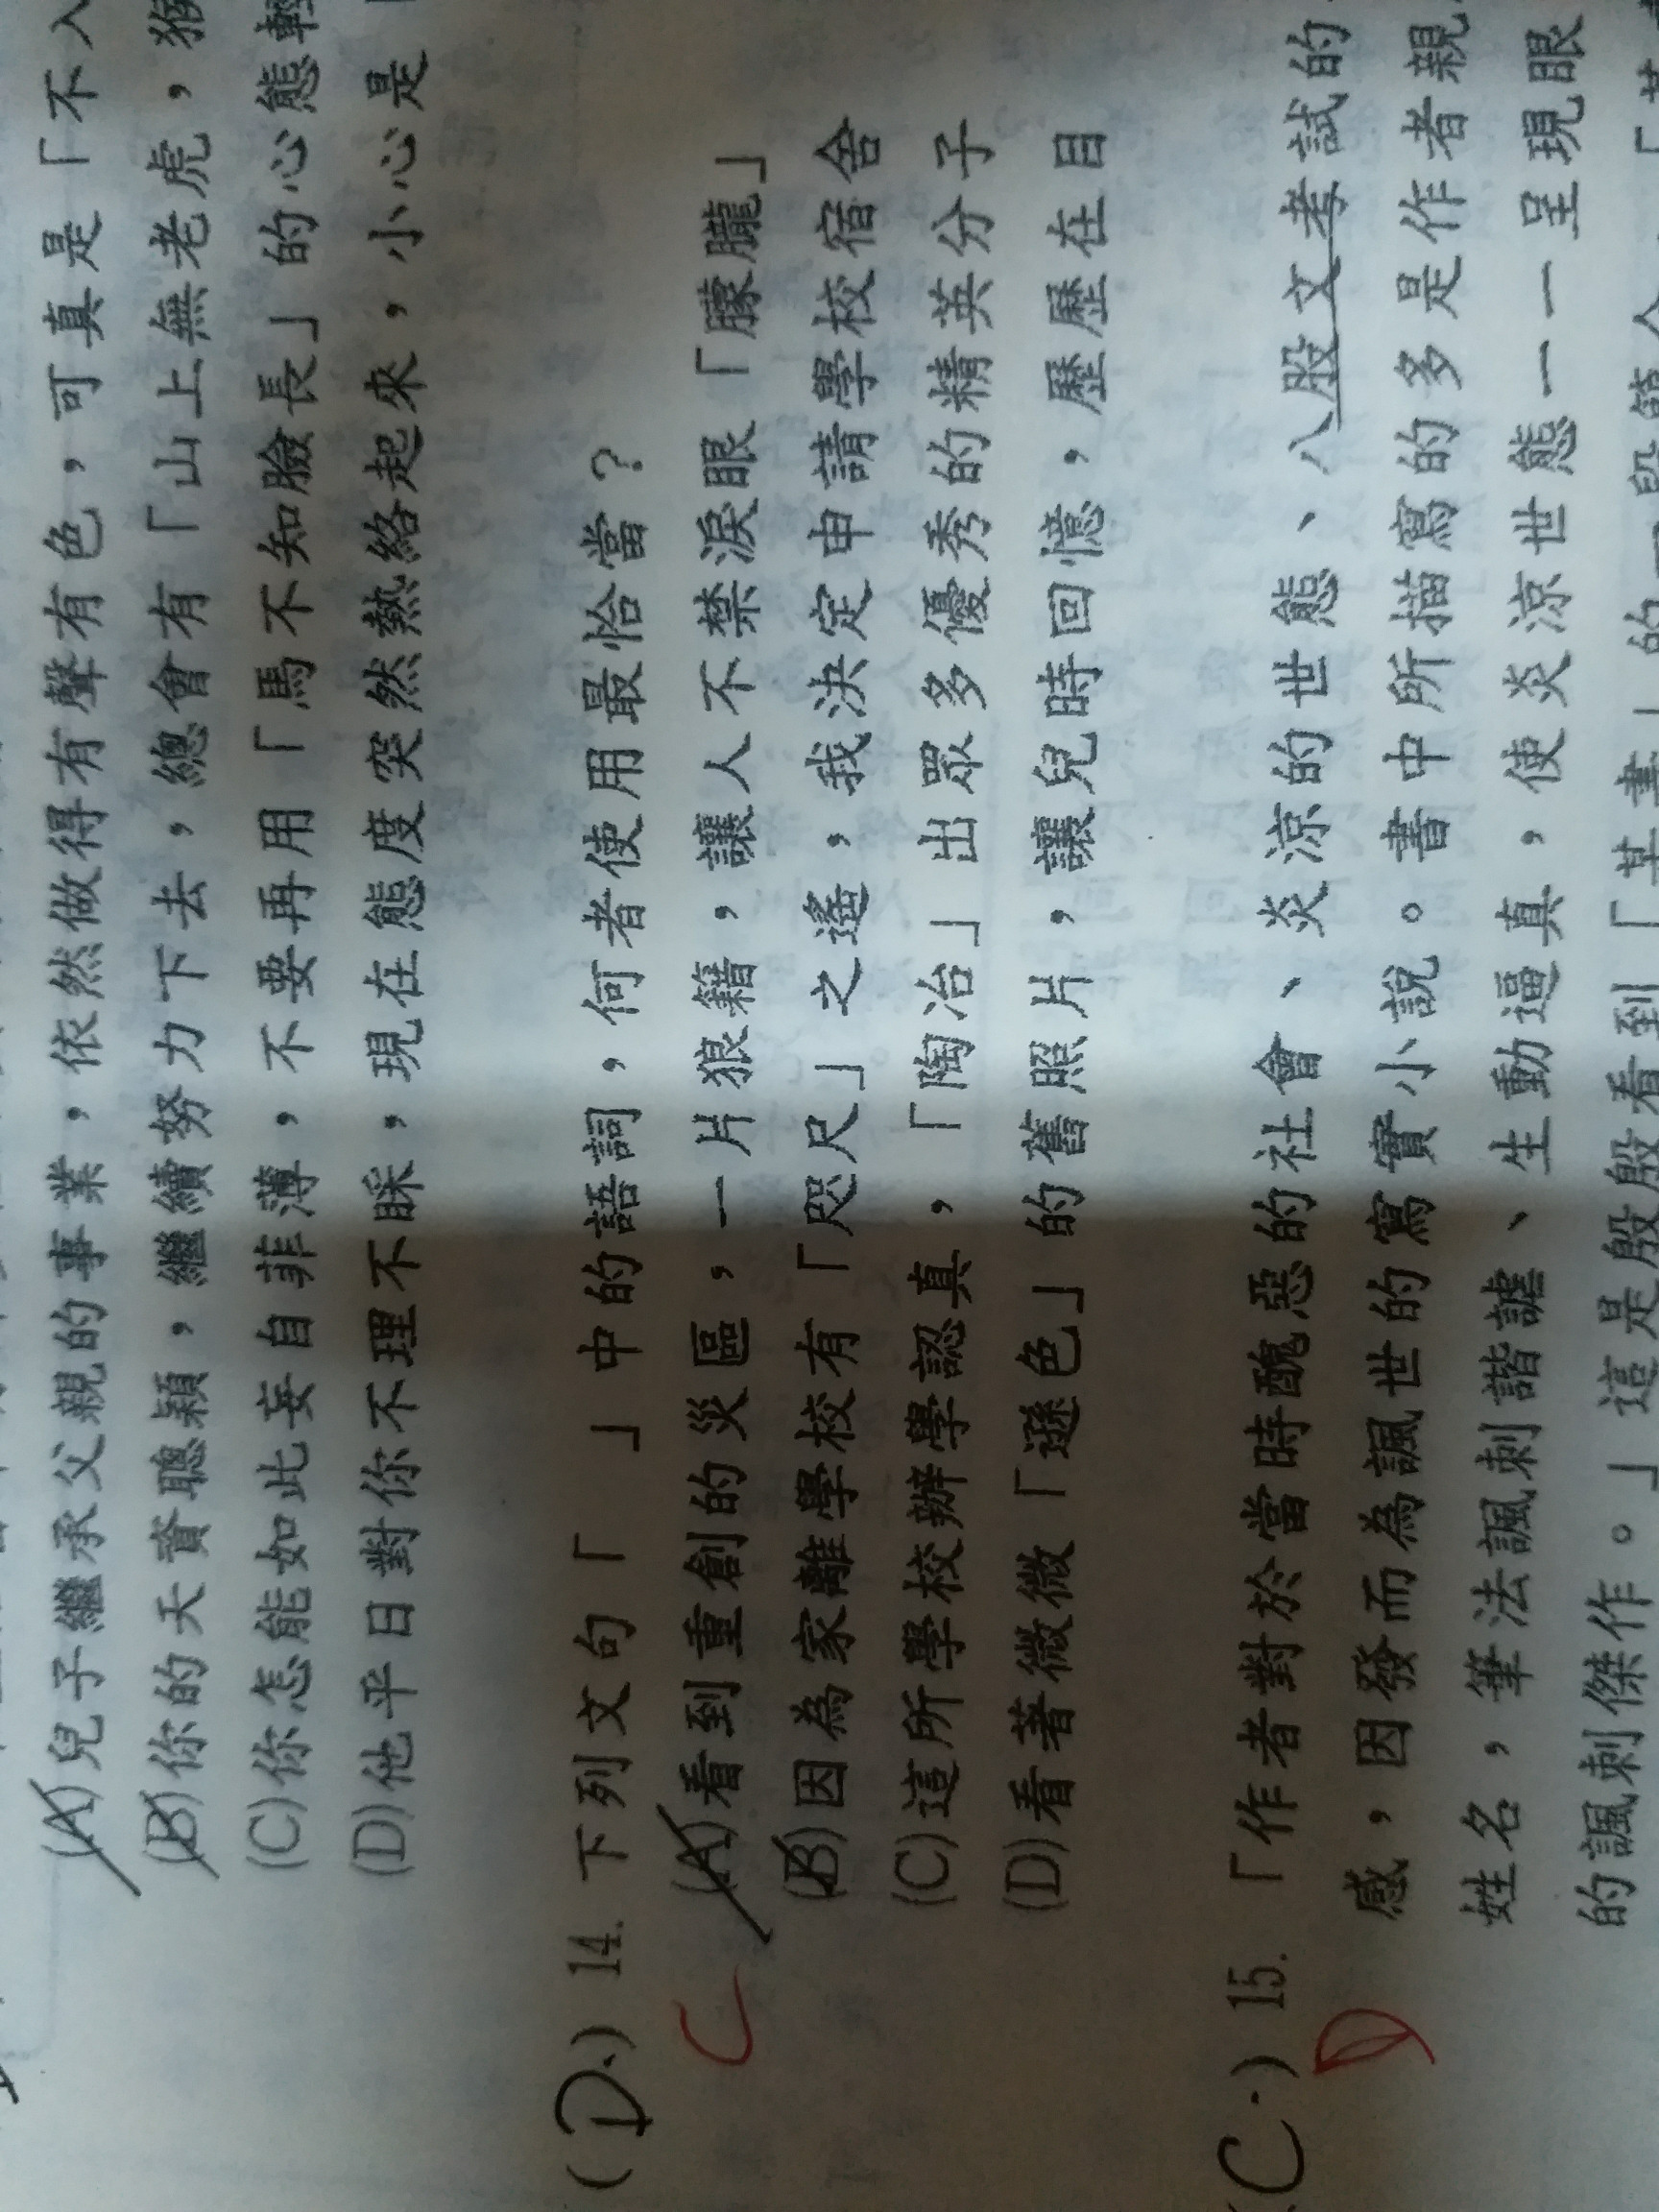 (A)兒子繼承父親的事業，依然做得有聲有色，可真是「不入
(B)你的天資聰穎，繼續努力下去，總會有「山上無老虎，猴
(C)你怎能如此妄自菲薄，不要再用「馬不知臉長」的心態輕
(D)他平日對你不理不睬，現在態度突然熱絡起來，小心是「
(D.) 14. 下列文句「　」中的語詞，何者使用最恰當？
C
(A)看到重創的災區，一片狼籍，讓人不禁淚眼「朦朧」
(B)因為家離學校有「咫尺」之遙，我決定申請學校宿舍
(C)這所學校辦學認真，「陶冶」出眾多優秀的精英分子
(D)看著微微「遜色」的舊照片，讓兒時回憶，歷歷在目
(C.) 15. 「作者對於當時醜惡的社會、炎涼的世態、八股文考試的
D
感，因發而為諷世的寫實小說。書中所描寫的多是作者親
姓名，筆法諷刺諧謔、生動逼真，使炎涼世態一一呈現眼
的諷刺傑作。」這是殷殷看到「某書」的一段簡介，「某書